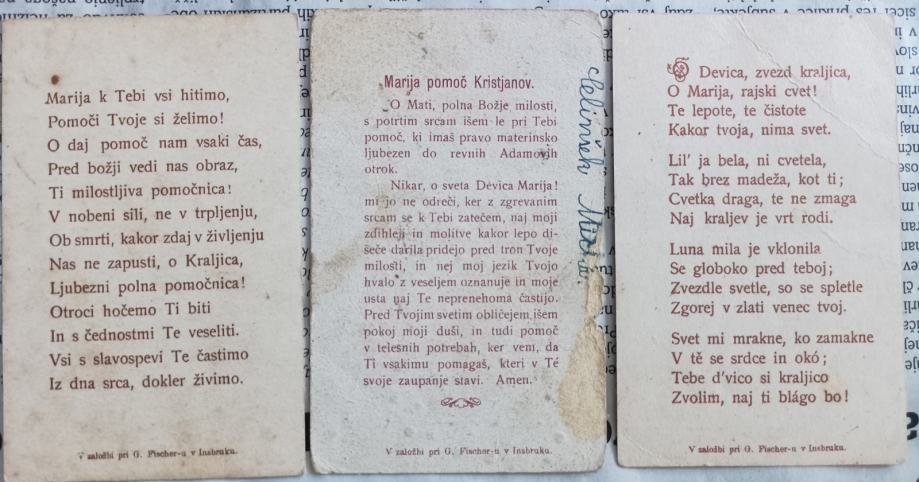 Marija k Tebi vsi hitimo,
Pomoči Tvoje si želimo!
O daj pomoč nam vsaki čas,
Pred božji vedi nas obraz,
Ti milostljiva pomočnica!
V nobeni sili, ne v trpljenju,
Ob smrti, kakor zdaj v življenju
Nas ne zapusti, o Kraljica,
Ljubezni polna pomočnica!
Otroci hočemo Ti biti
In s čednostmi Te veseliti.
Vsi s slavospevi Te častimo
Iz dna srca, dokler živimo.
V založbi pri G. Fischer-u v Insbruku.
Marija pomoč Kristjanov.
O Mati, polna Božje milosti,
s potrtim srcam išem le pri Tebi
pomoč, ki imaš pravo materinsko
ljubezen do revnih Adamovih
otrok.
Nikar, o sveta Devica Marija!
mi jo ne odreči, ker z zgrevanim
srcam se k Tebi zatečem, naj moji
zdihleji in molitve kakor lepo di-
šeče darila pridejo pred tron Tvoje
milosti, in nej moj jezik Tvojo
hvalo z veseljem oznanuje in moje
usta naj Te neprenehoma častijo.
Pred Tvojim svetim obličejem išem
pokoj moji duši, in tudi pomoč
v telesnih potrebah, ker vem, da
Ti vsakimu pomagaš, kteri v Té
svoje zaupanje stavi. Amen.
V založbi pri G. Fischer-u v Insbruku.
Selinšek Micka.
O Devica, zvezd kraljica,
O Marija, rajski cvet!
Te lepote, te čistote
Kakor tvoja, nima svet.
Lil' ja bela, ni cvetela,
Tak brez madeža, kot ti;
Cvetka draga, te ne zmaga
Naj kraljev je vrt rodi.
Luna mila je vklonila
Se globoko pred teboj;
Zvezdle svetle, so se spletle
Zgorej v zlati venec tvoj.
Svet mi mrakne, ko zamakne
V tě se srdce in okó;
Tebe d'vico si kraljico
Zvolim, naj ti blágo bo!
V založbi pri G. Fischer-u v Insbruku.